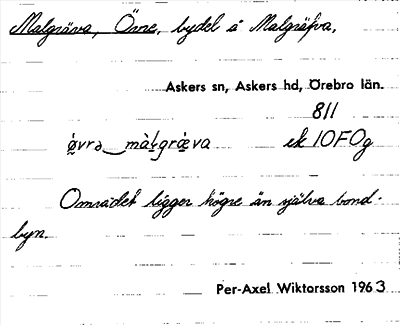 Malgräva, Övre, bydel å Malgräva,
Askers sn, Askers hd, Örebro län.
811
ek 10F0g
Området ligger högre än själva bond-
byn.
Per-Axel Wiktorsson 1963